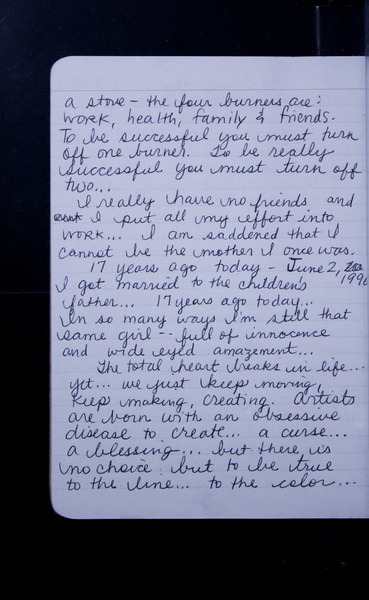 a stove - the four burners are:
work, health, family & friends.
To be successful you must turn
off one burner. To be really
successful you must turn off
two...
I really have no friends and
I put all my effort into
work... I am saddened that I
cannot be the mother I once was.
17 years ago today - June 2,
1990
I got married to the children's
father... 17 years ago today...
In so many ways I'm still that
same girl -- full of innocence
and wide eyed amazement...
The total heart breaks in life...
yet... we just keep moving,
keep making, creating. Artists
are born with an obsessive
disease to create... a curse...
a blessing... but there is
no choice but to be true
to the line... to the color...